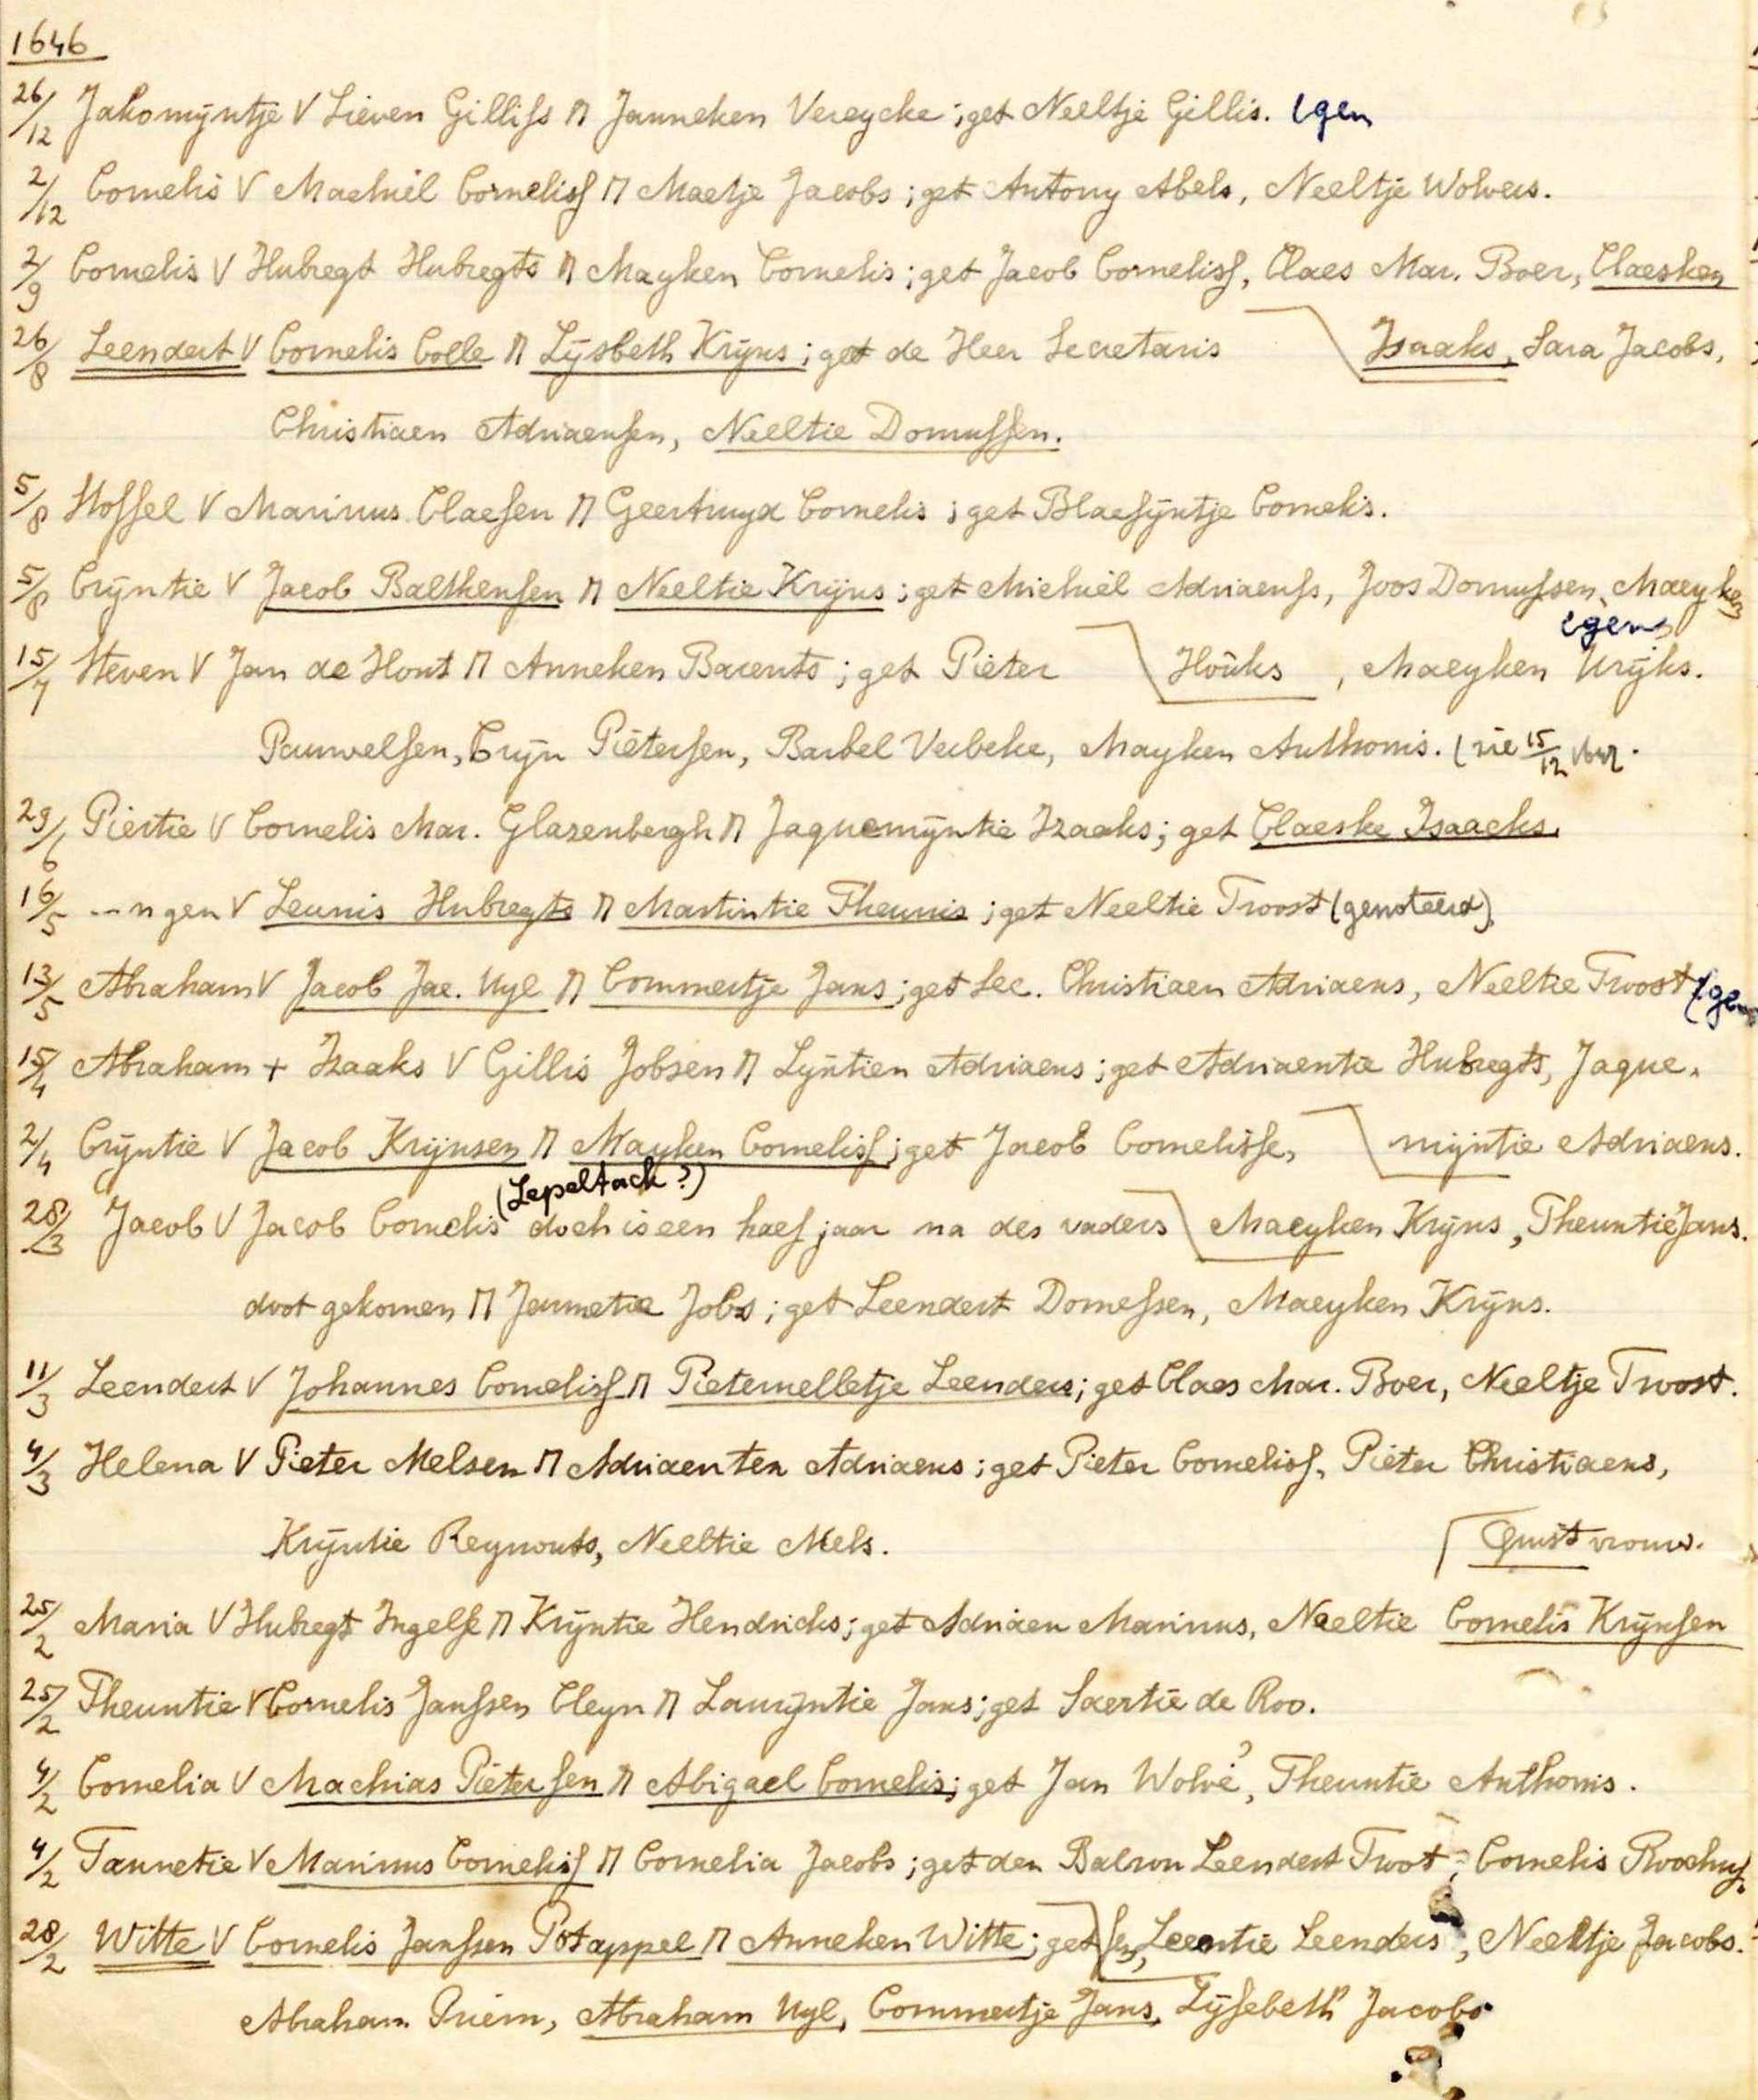 1646
26/12 Jakomijntje V Lieven Gilliss M Janneken Vereycke; get Neeltje Gillis. (gen
2/12 Cornelis V Machiel Corneliss M Maetje Jacobs; get Antony Abels, Neeltje Wolvers.
2/9 Cornelis V Hubregt Hubregts M Mayken Cornelis; get Jacob Corneliss, Claes Mar. Boer, Claesken
26/8 Leendert V Cornelis Colle M Lijsbeth Krijns; get de Heer Secretaris Isaaks, Sara Jacobs,
Christiaen Adriaensen, Neeltie Domussen.
5/8 Stoffel V Marinus Claesen M Geertruyd Cornelis; get Blaesijntje Cornelis.
5/8 Crijntie V Jacob Balthensen M Neeltie Krijns; get Michiel Adriaenss, Joos Domussen, Maeyken
(gen)
15/7 Steven V Jan de Hont M Anneken Barents; get Pieter Houks, Maeyken Krijks.
Pauwelsen, Crijn Pietersen, Barbel Verbeke, Mayken Anthonis. (zie 15/12
29/6 Piertie V Cornelis Mar. Glazenbergh M Jaquemijntie Izaaks; get Claeske Isaacks.
16/5 ---ngen V Leunis Hubregts M Martintie Theunis; get Neeltie Troost (genoteerd)
13/5 Abraham V Jacob Jac. Uyl M Commertje Jans; get Sec. Christiaen Adriaens, Neeltie Troost (gen
15/4 Abraham + Izaaks V Gillis Jobsen M Lijntien Adriaens; get Adriaentie Hubregts, Jaque-
2/4 Crijntie V Jacob Krijnsen M Mayken Corneliss; get Jacob Cornelisse, mijntie Adriaens.
(Lepeltack?)
28/3 Jacob V Jacob Cornelis doch is een haef jaar na des vaders Maeyken Krijns, Theuntie Jans.
doot gekomen M Jannetie Jobs; get Leendert Domessen, Maeyken Krijns.
11/3 Leendert V Johannes Corneliss M Pieternelletje Leenders; get Claes Mar. Boer, Neeltje Troost.
4/3 Helena V Pieter Melsen M Adriaenten Adriaens; get Pieter Corneliss, Pieter Christiaens,
Krijntie Reynouts, Neeltie Mels. Quist vrouw.
25/2 Maria V Hubregt Ingelse M Krijntie Hendricks; get Adriaen Marinus, Neeltie Cornelis Krijnsen
25/2 Theuntie V Cornelis Janssen Cleyn M Laurijntie Jans; get Saertie de Roo.
4/2 Cornelia V Machias Pietersen M Abigael Cornelis; get Jan Wolve?, Theuntie Anthonis.
4/2 Tannetie V Marinus Corneliss M Cornelia Jacobs; get den Baleron Leendert Troot, Cornelis Roochuy
28/2 Witte V Cornelis Janssen Potappel M Anneken Witte; get sen, Leentie Leenders, Neeltje Jacobs.
Abraham Priem, Abraham Uyl, Commertje Jans, Lijsebeth Jacobs